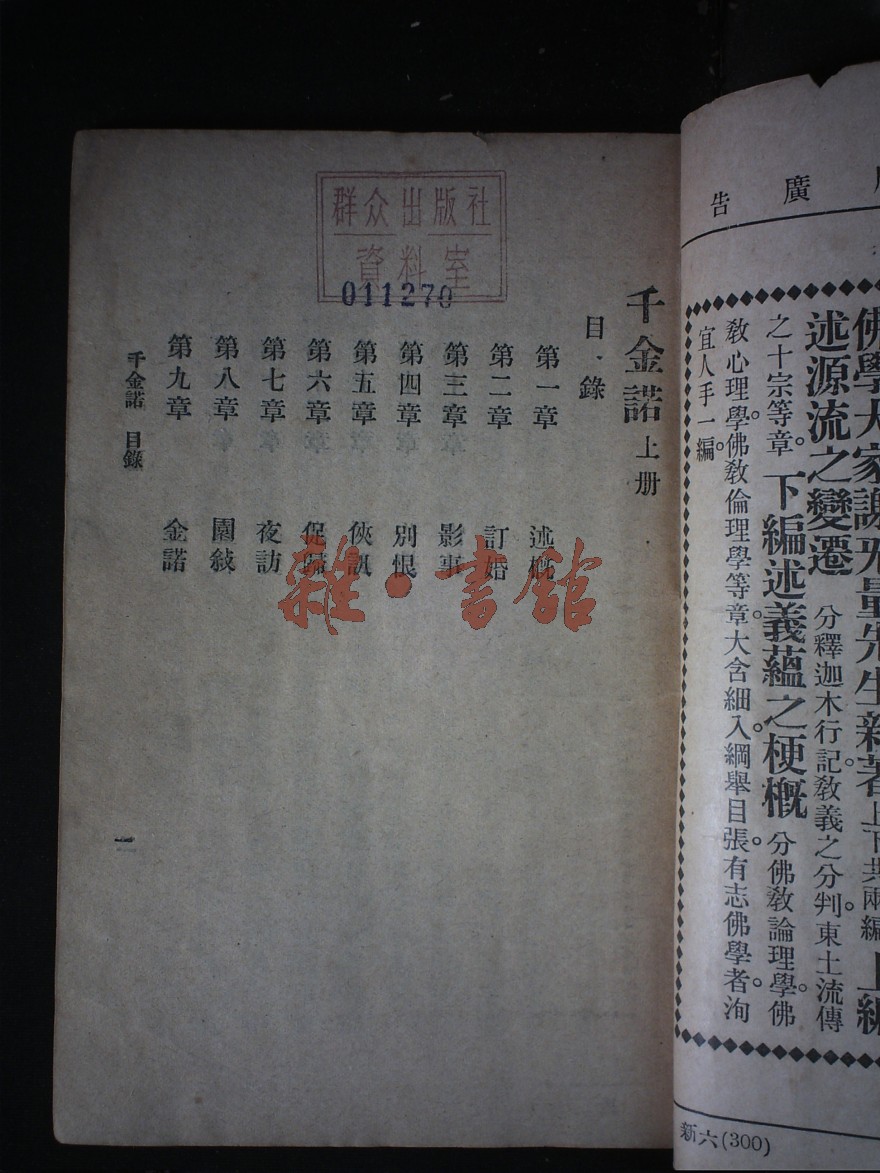 告 廣
佛學大家謝無量先生新著 上下共兩編 上編
述源流之變遷 分釋迦木行記。教義之分判。東土流傳
之十宗等章。 下編述義蘊之梗概 分佛教論理學。佛
教心理學。佛教倫理學等章。大含細入。綱舉目張。有志佛學者。洵
宜人手一編。
新六(300)
群众出版社
資料室
011270
千金諾 上册
目錄
第一章 述概
第二章 訂婚
第三章 影事
第四章 別恨
第五章 俠訊
第六章 促歸
第七章 夜訪
第八章 園敍
第九章 金諾
千金諾 目錄
一
雜·書館